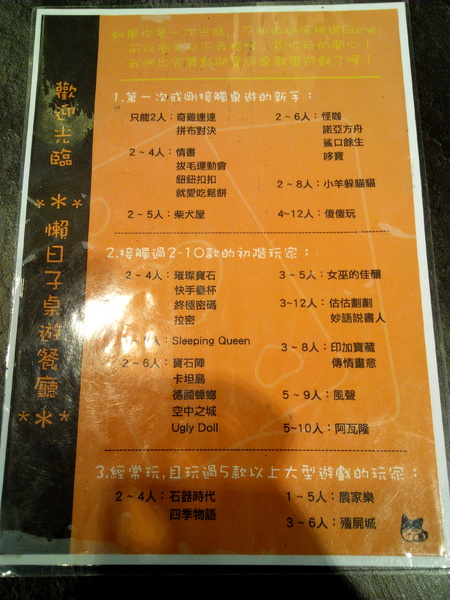 歡迎光臨
懶日子桌遊餐廳
如果你第一次光臨，
可以參考以下表格
1.第一次或剛接觸桌遊的新手：
只能2人：奇雞連連
拼布對決
2～4人：情書
拔毛運動會
鈕鈕扣扣
就愛吃鬆餅
2～5人：柴犬屋
2～6人：怪咖
諾亞方舟
鯊口餘生
哆寶
2～8人：小羊躲貓貓
4~12人：傻傻玩
2.接觸過2-10款的初階玩家：
2～4人：璀璨寶石
快手疊杯
終極密碼
拉密
人：Sleeping Queen
2～6人：寶石陣
卡坦島
德國蟑螂
空中之城
Ugly Doll
3～5人：女巫的佳釀
3~12人：估估劃劃
妙語説書人
3～8人：印加寶藏
傳情畫意
5～9人：風聲
5~10人：阿瓦隆
3.經常玩,且玩過5款以上大型遊戲的玩家：
2～4人：石器時代
四季物語
1～5人：農家樂
3～6人：殭屍城